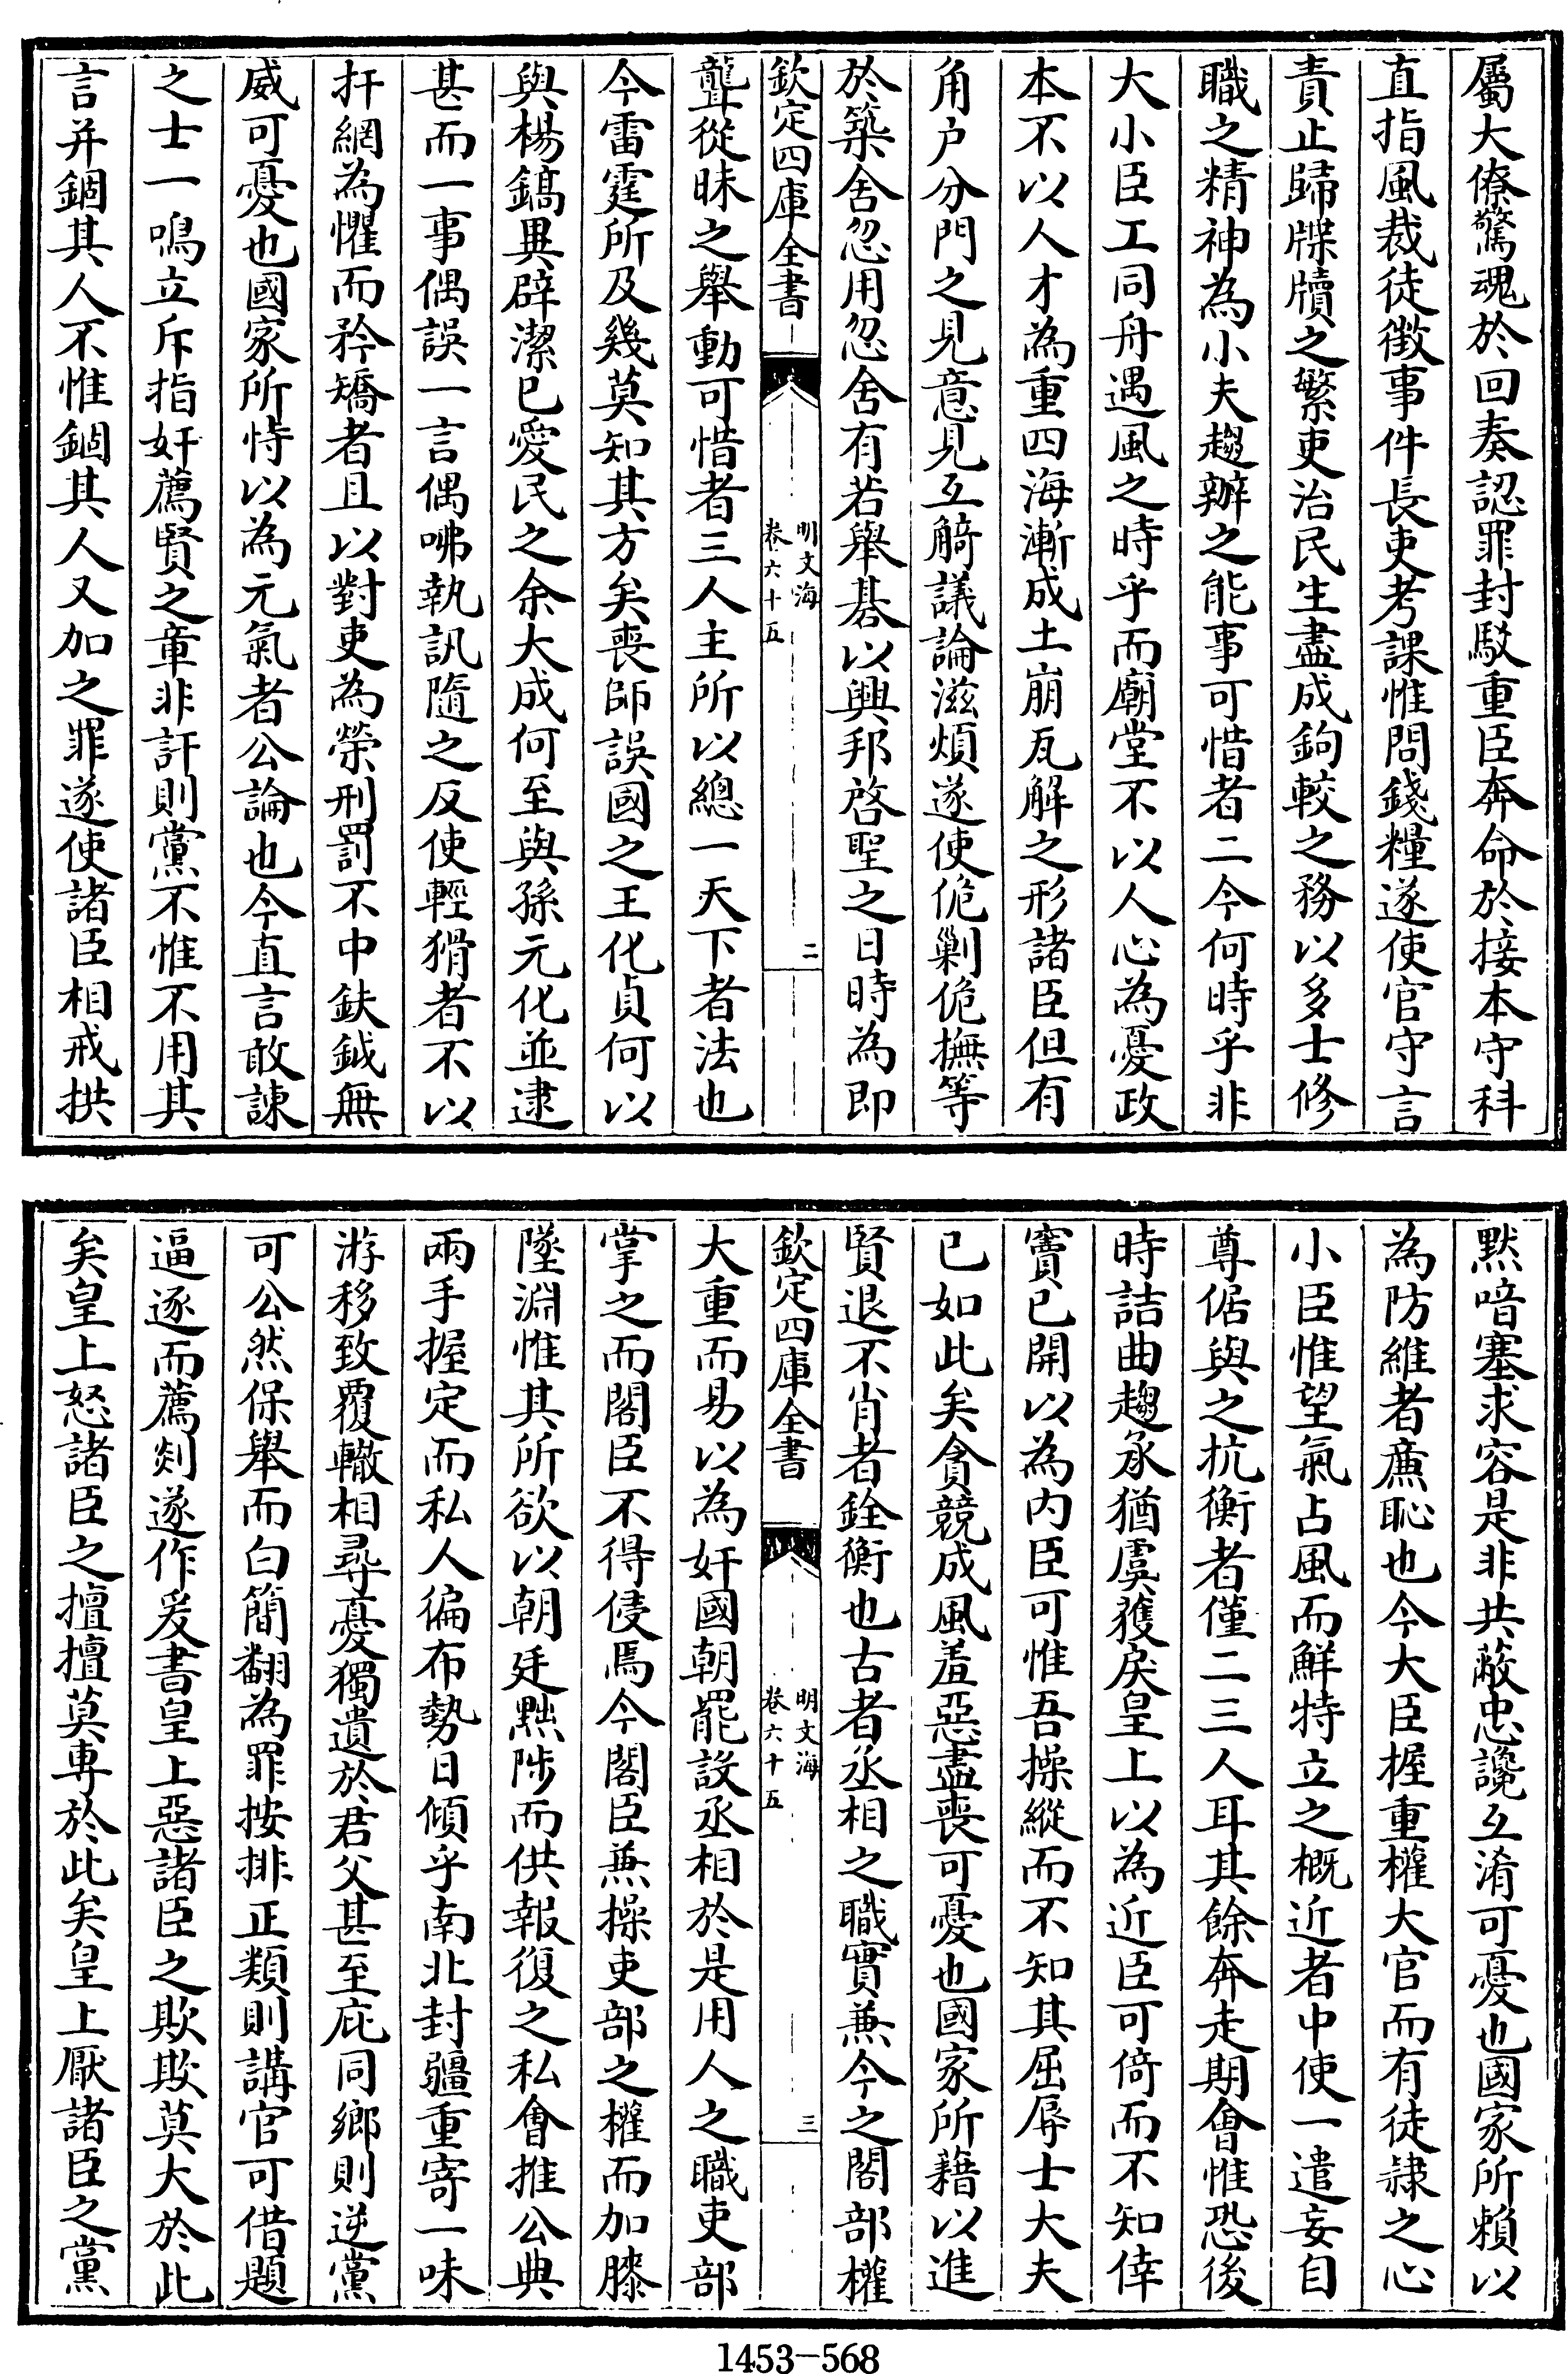 屬大僚驚魂於回奏認罪封駁重臣奔命於接本守科
直指風裁徒徵事件長吏考課惟問錢糧遂使官守言
責止歸牒牘之繁吏治民生盡成鉤較之務以多士修
職之精神為小夫趨辦之能事可惜者二今何時乎非
大小臣工同舟遇風之時乎而廟堂不以人心為憂政
本不以人才為重四海漸成土崩瓦解之形諸臣但有
角户分門之見意見互觭議論滋煩遂使佹剿佹撫等
於築舍忽用忽舍有若舉碁以興邦啓聖之日時為即
欽定四庫全書
明文海
卷六十五
二
聾從昧之舉動可惜者三人主所以總一天下者法也
今雷霆所及幾莫知其方矣喪師誤國之王化貞何以
與楊鎬異辟潔已愛民之余大成何至與孫元化並逮
甚而一事偶誤一言偶咈執訊隨之反使輕猾者不以
扞網為懼而矜矯者且以對吏為榮刑罰不中鈇鉞無
威可憂也國家所恃以為元氣者公論也今直言敢諫
之士一鳴立斥指奸薦賢之章非訐則黨不惟不用其
言并錮其人不惟錮其人又加之罪遂使諸臣相戒拱
默喑塞求容是非共蔽忠讒互淆可憂也國家所賴以
為防維者廉恥也今大臣握重權大官而有徒隸之心
小臣惟望氣占風而鮮特立之概近者中使一遣妄自
尊倨與之抗衡者僅二三人耳其餘奔走期會惟恐後
時詰曲趨承猶虞獲戾皇上以為近臣可倚而不知倖
竇已開以為内臣可惟吾操縱而不知其屈辱士大夫
已如此矣貪競成風羞惡盡喪可憂也國家所藉以進
賢退不肖者銓衡也古者丞相之職實兼今之閣部權
欽定四庫全書
明文海
卷六十五
三
大重而易以為奸國朝罷設丞相於是用人之職吏部
掌之而閣臣不得侵焉今閣臣兼操吏部之權而加膝
墜淵惟其所欲以朝廷黜陟而供報復之私會推公典
兩手握定而私人徧布勢日傾乎南北封疆重寄一味
游移致覆轍相尋憂獨遺於君父甚至庇同鄉則逆黨
可公然保舉而白簡翻為罪按排正類則講官可借題
逼逐而薦剡遂作爰書皇上惡諸臣之欺欺莫大於此
矣皇上怒諸臣之擅擅莫專於此矣皇上厭諸臣之黨
1453—568